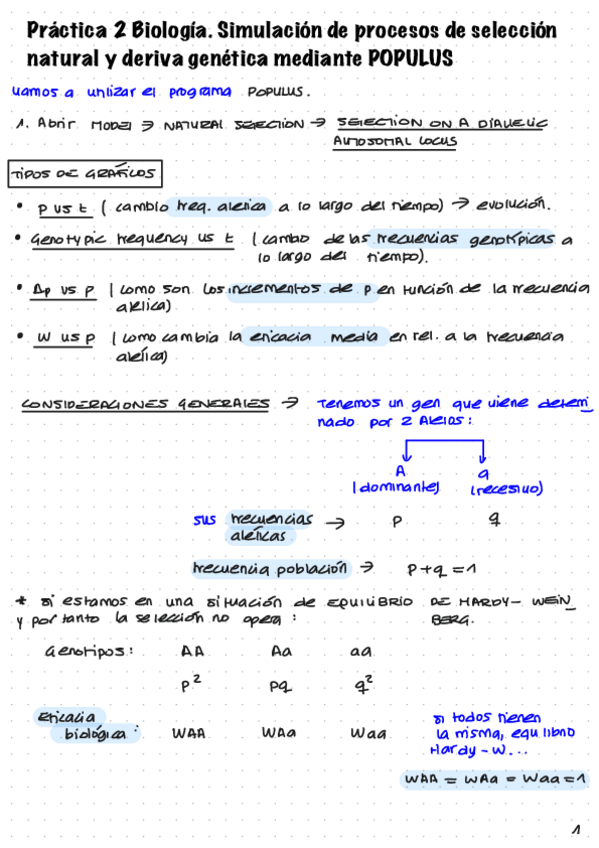 Práctica 2 Biología. Simulación de procesos de selección
natural y deriva genética mediante POPULUS
vamos a utilizar el programa POPULUS.
1. Abrir MODEL → NATURAL SELECTION → SELECTION ON A DIALLELIC
AUTOSOMAL LOCUS
TIPOS DE GRÁFICOS
• p vs t ( cambio freq. alelica a lo largo del tiempo) → evolución.
• Genotypic frequency vs t ( cambio de las frecuencias genotípicas a
lo largo del tiempo).
• Δp vs p ( como son los incrementos de p en función de la frecuencia
alelica)
• W vs p ( como cambia la eficacia media en rel. a la frecuencia
alelica)
CONSIDERACIONES GENERALES → Tenemos un gen que viene determi_
nado por 2 Alelos:
A a
(dominante) (recesivo)
sus frecuencias → p q
alélicas
frecuencia población → p+q=1
* si estamos en una situación de EQUILIBRIO DE HARDY-WEIN_
y por tanto la selección no opera : BERG.
Genotipos: AA Aa aa
p² pq q²
Eficacia biológica: WAA WAa Waa
si todos tienen
la misma, equilibrio
Hardy-W...
WAA = WAa = Waa = 1
1